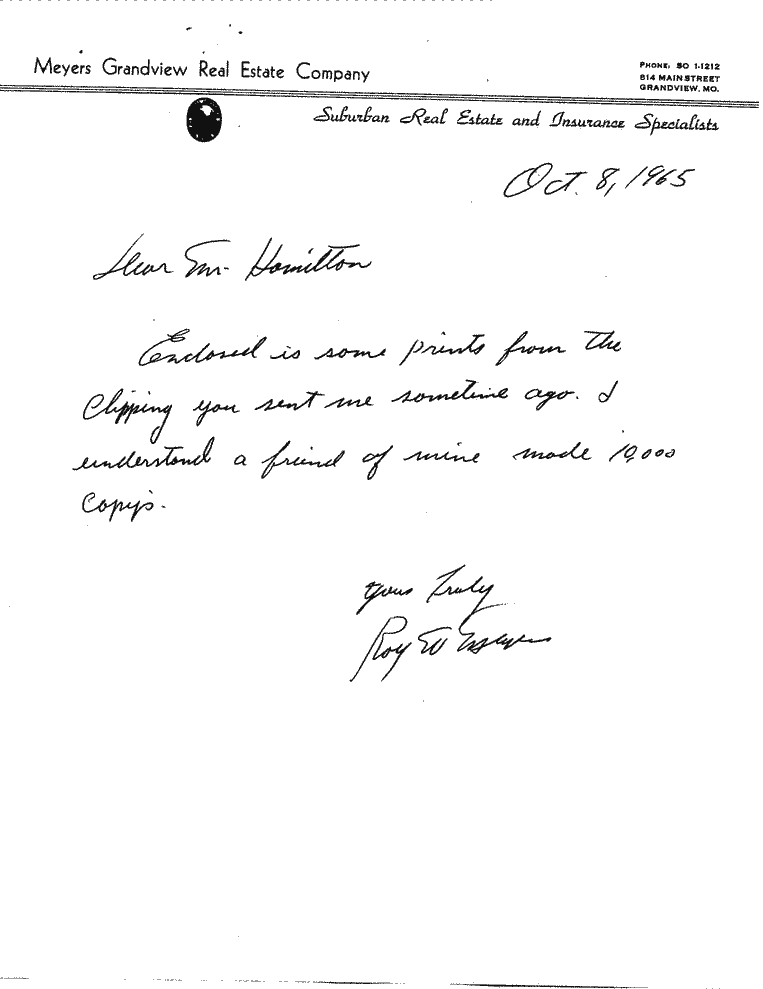 Meyers Grandview Real Estate Company
PHONE: SO 1-1212
814 MAIN STREET
GRANDVIEW, MO.
Suburban Real Estate and Insurance Specialists
Oct. 8, 1965
Dear Mr. Hamilton
Enclosed is some prints from the
Clipping you sent me sometime ago. I
understand a friend of mine made 10,000
Copys.
Yours Truly
Roy W Meyers